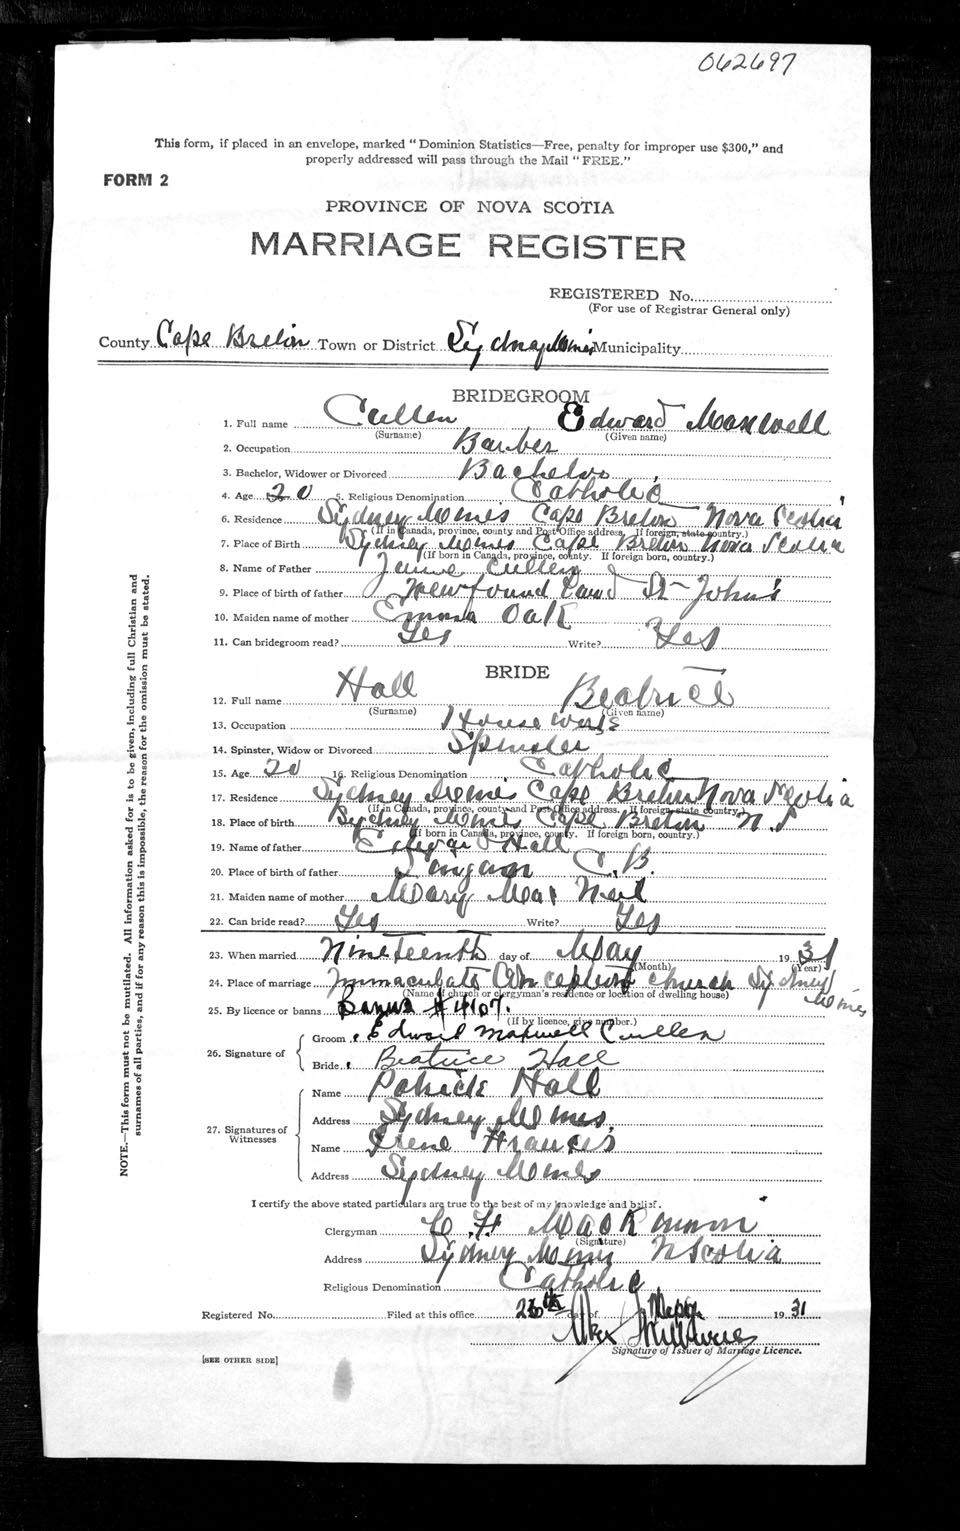 062697
This form, if placed in an envelope, marked "Dominion Statistics—Free, penalty for improper use $300," and
properly addressed will pass through the Mail "FREE."
FORM 2
PROVINCE OF NOVA SCOTIA
MARRIAGE REGISTER
REGISTERED No.
(For use of Registrar General only)
County Cape Breton Town or District Sydney Mines Municipality
BRIDEGROOM
1. Full name Cullen Edward Maxwell
(Surname) (Given name)
2. Occupation Barber
3. Bachelor, Widower or Divorced Bachelor
4. Age 20 5. Religious Denomination Catholic
6. Residence Sydney Mines Cape Breton Nova Scotia
(If in Canada, province, county and Post Office address. If foreign, state country.)
7. Place of Birth Sydney Mines Cape Breton Nova Scotia
(If born in Canada, province, county. If foreign born, country.)
8. Name of Father Cullen
9. Place of birth of father Newfoundland St John's
10. Maiden name of mother Emma Oak
11. Can bridegroom read? Yes Write? Yes
BRIDE
12. Full name Hall Beatrice
(Surname) (Given name)
13. Occupation House work
14. Spinster, Widow or Divorced Spinster
15. Age 20 16. Religious Denomination Catholic
17. Residence Sydney Mines Cape Breton Nova Scotia
(If in Canada, province, county and Post Office address. If foreign, state country.)
18. Place of birth Sydney Mines Cape Breton N.S
(If born in Canada, province, county. If foreign born, country.)
19. Name of father George Hall
20. Place of birth of father Lingan C.B.
21. Maiden name of mother Mary Mac Neil
22. Can bride read? Yes Write? Yes
23. When married Nineteenth day of May 1931
(Month) (Year)
24. Place of marriage Immaculate Conception church Sydney Mines
(Name of church or clergyman's residence or location of dwelling house)
25. By licence or banns Banns # 4107.
(If by licence, give number.)
26. Signature of Groom Edward Maxwell Cullen
Bride Beatrice Hall
27. Signatures of Witnesses Name Patrick Hall
Address Sydney Mines,
Name Irene Francis
Address Sydney Mines
I certify the above stated particulars are true to the best of my knowledge and belief.
Clergyman MacKinnon
(Signature)
Address Sydney Mines N Scotia
Religious Denomination Catholic
Registered No. Filed at this office 26th day of 1931
Signature of Issuer of Marriage Licence.
[SEE OTHER SIDE]
NOTE.—This form must not be mutilated. All information asked for is to be given, including full Christian and
surnames of all parties, and if for any reason this is impossible, the reason for the omission must be stated.